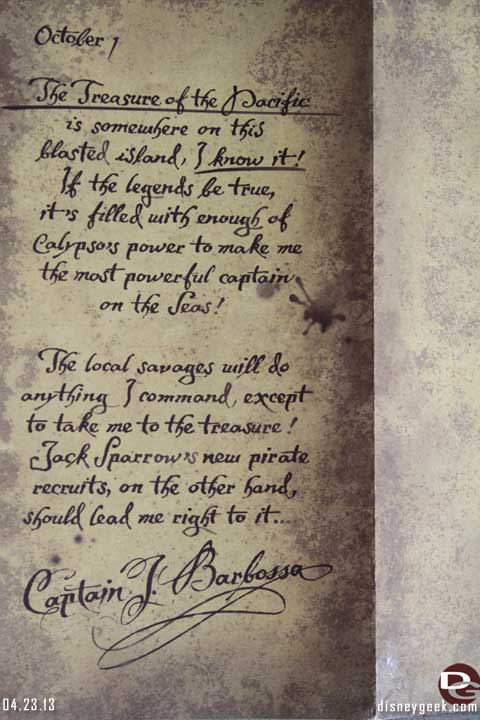 October 1
The Treasure of the Pacific
is somewhere on this
blasted island, I know it!
If the legends be true,
it's filled with enough of
Calypso's power to make me
the most powerful captain
on the Seas!
The local savages will do
anything I command, except
to take me to the treasure!
Jack Sparrow's new pirate
recruits, on the other hand,
should lead me right to it....
Captain J. Barbossa
DG
04.23.13
disneygeek.com